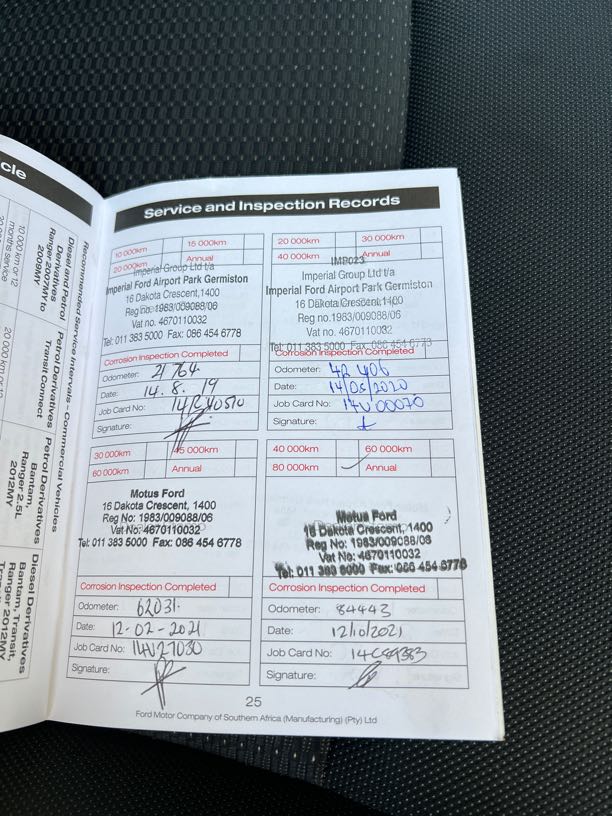 cle
Recommended Service Intervals – Commercial Vehicles
Diesel and Petrol
Derivatives
Ranger 2007MY to
2009MY
Petrol Derivatives
Transit Connect
Petrol Derivatives
Bantam,
Ranger 2.5L
2012MY
Diesel Derivatives
Bantam, Transit,
Ranger 2012MY
10 000 km or 12
months service
Service and Inspection Records
10 000km 15 000km
20 000km
Imperial Group Ltd t/a
Imperial Ford Airport Park Germiston
16 Dakota Crescent,1400
Reg no.1983/009088/06
Vat no. 4670110032
Tel: 011 383 5000 Fax: 086 454 6778
Corrosion Inspection Completed
Odometer: 21 764
Date: 14.8.19
Job Card No:
Signature:
20 000km 30 000km
40 000km Annual
IMP023
Imperial Group Ltd t/a
Imperial Ford Airport Park Germiston
16 Dakota Crescent,1400
Reg no.1983/009088/06
Vat no. 4670110032
Tel: 011 383 5000 Fax: 086 454 6773
Corrosion Inspection Completed
Odometer: 42 406
Date: 14/05/2020
Job Card No: 14U00070
Signature:
30 000km 45 000km
60 000km Annual
Motus Ford
16 Dakota Crescent, 1400
Reg No: 1983/009088/06
Vat No: 4670110032
Tel: 011 383 5000 Fax: 086 454 6778
Corrosion Inspection Completed
Odometer: 62031.
Date: 12-02-2021
Job Card No: 14U27030
Signature:
40 000km 60 000km
80 000km Annual
Motus Ford
16 Dakota Crescent, 1400
Reg No: 1983/009088/06
Vat No: 4670110032
Tel: 011 383 5000 Fax: 086 454 6778
Corrosion Inspection Completed
Odometer: 84443
Date: 12/10/2021
Job Card No:
Signature:
25
Ford Motor Company of Southern Africa (Manufacturing) (Pty) Ltd